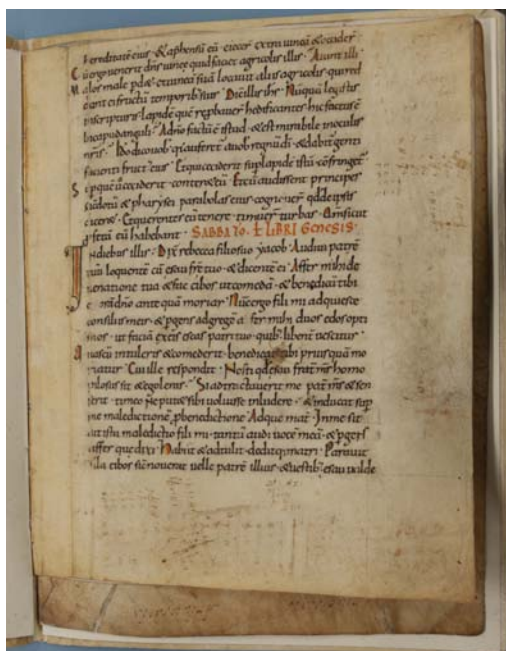 hereditatē eius · & aphensū eū · eiecer̄ extra uineā & occider̄
Cū ergo uenerit dn̄s uineę quid faciet agricolis illis · Aiunt illi
Malos male pdet & uineā suā locauit aliis agricolis · qui red
dant ei fructū temporib; suis · Dicit illis ihs · Nūquā legistis
in scripturis · lapidē quē reprobauer̄ hedificantes hic factus ē
in caput anguli · A dn̄o factū ē istud · & est mirabile in oculis
nr̄is · Ido dico uob · q'a auferet a uob regnū di · & dabit genti
facienti fruct' eius · Et qui ceciderit sup lapidē istū cōfringet
sup quē ů ceciderit · conteret eū · Et cū audissent principes
sacdotū & pharisei parabolas eius · cognouer̄ qd de ipsis
diceret · Et querentes eū tenere · timuer̄ turbas · Qm̄ sicut
pfetā eū habebant · SABBATO · Ł LIBRI GENESIS ·
In diebus illis · Dix̄ rebecca filio suo yacob · Audiui patrē
tuū loquentē cū esau fr̄e tuo · & dicentē ei · Affer mihi de
uenatione tua & fac cibos ut comedā · & benedicā tibi
corā dn̄o ante quā moriar · Nūc ergo fili mi adquiesce
consiliis meis · & pgens ad gregē affer mihi duos edos opti
mos · ut faciā ex eis escas patri tuo · quib; libent uescitur
Quas cū intuleris & comederit · benedicat tibi priusquā mo
riatur · Cui ille respondit · Nosti qd esau frat̄ ms̄ homo
pilosus sit & ego lenis · Si adtrectauerit me pat̄ ms̄ & sen
serit · timeo ne putet sibi uoluisse inludere · & inducat sup
me maledictionē p benedictione · Ad que mat̄ · In me sit
ait ista maledictio fili mi · tantū audi uocē meā · & pgens
affer que dixi · Habiit & adtulit · dedit q; matri · Parauit
illa cibos sic̄ nouerat uelle patrē illius · & uestib; esau ualde